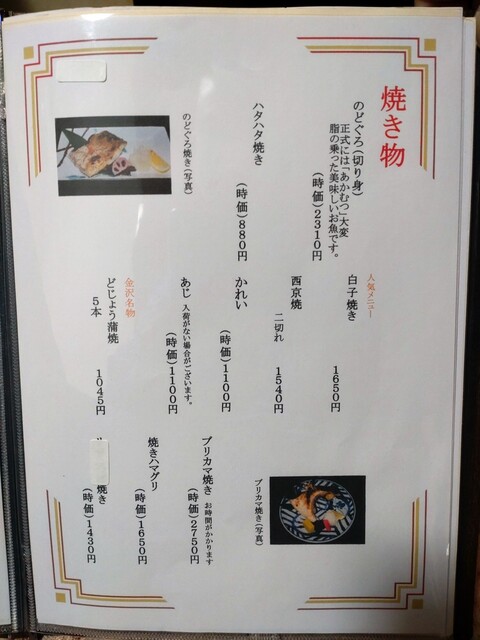 焼き物
のどぐろ(切り身)
正式には「あかむつ」大変
脂の乗った美味しいお魚です。
(時価)2310円
ハタハタ焼き
(時価)880円
のどぐろ焼き(写真)
人気メニュー
白子焼き
1650円
西京焼
二切れ
1540円
かれい
(時価)1100円
あじ 入荷がない場合がございます。
(時価)1100円
金沢名物
どじょう蒲焼
5本
1045円
ブリカマ焼き(写真)
ブリカマ焼き お時間がかかります
(時価)2750円
焼きハマグリ
(時価)1650円
焼き
(時価)1430円